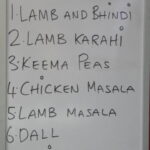 1. LAMB AND BHINDI
2. LAMB KARAHI
3. KEEMA PEAS
4. CHICKEN MASALA
5. LAMB MASALA
6. DALL